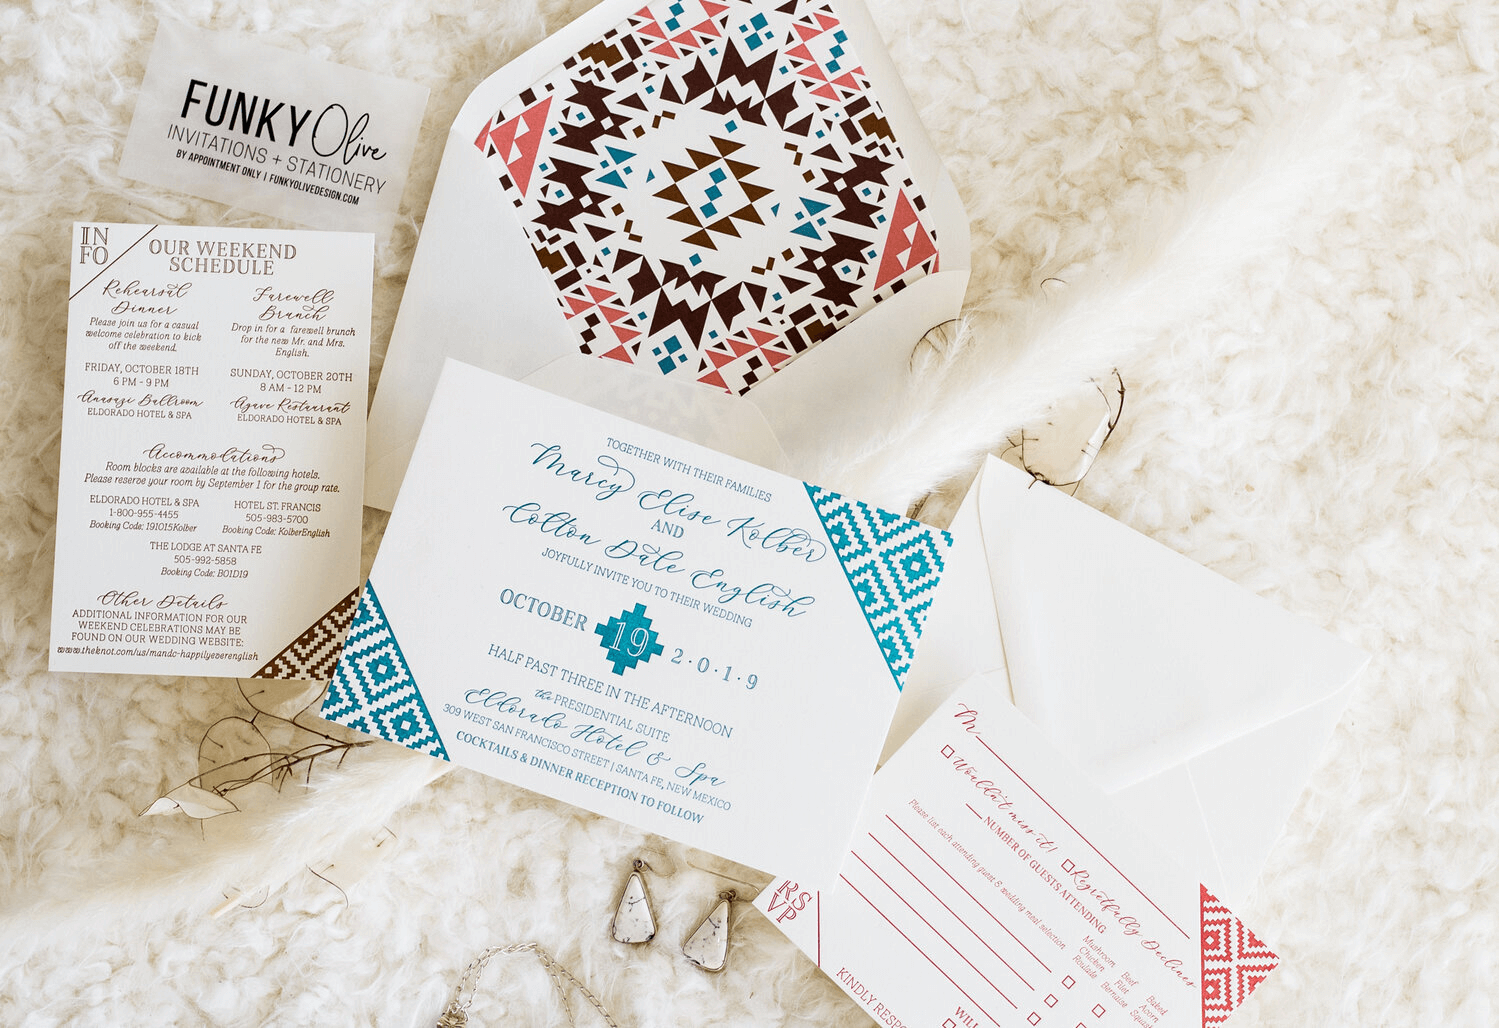 FUNKY Olive
INVITATIONS + STATIONERY
BY APPOINTMENT ONLY | FUNKYOLIVEDESIGN.COM
IN
FO
OUR WEEKEND
SCHEDULE
Rehearsal
Dinner
Please join us for a casual
welcome celebration to kick
off the weekend.
FRIDAY, OCTOBER 18TH
6 PM - 9 PM
Anasazi Ballroom
ELDORADO HOTEL & SPA
Farewell
Brunch
Drop in for a farewell brunch
for the new Mr. and Mrs.
English.
SUNDAY, OCTOBER 20TH
8 AM - 12 PM
Agave Restaurant
ELDORADO HOTEL & SPA
Accommodations
Room blocks are available at the following hotels.
Please reserve your room by September 1 for the group rate.
ELDORADO HOTEL & SPA
1-800-955-4455
Booking Code: 191015Kolber
HOTEL ST. FRANCIS
505-983-5700
Booking Code: KolberEnglish
THE LODGE AT SANTA FE
505-992-5858
Booking Code: B01D19
Other Details
ADDITIONAL INFORMATION FOR OUR
WEEKEND CELEBRATIONS MAY BE
FOUND ON OUR WEDDING WEBSITE:
www.theknot.com/us/mandc-happilyeverenglish
TOGETHER WITH THEIR FAMILIES
Marcy Elise Kolber
AND
Colton Dale English
JOYFULLY INVITE YOU TO THEIR WEDDING
OCTOBER 19 2·0·1·9
HALF PAST THREE IN THE AFTERNOON
the PRESIDENTIAL SUITE
Eldorado Hotel & Spa
309 WEST SAN FRANCISCO STREET | SANTA FE, NEW MEXICO
COCKTAILS & DINNER RECEPTION TO FOLLOW
M
Wouldn't miss it! Regretfully Declines
NUMBER OF GUESTS ATTENDING
Please list each attending guest & wedding meal selection
Mushroom
Chicken
Roulade
Beef
Filet
Bernaise
Baked
Acorn
Squash
RS
VP
KINDLY RESPO
WILL